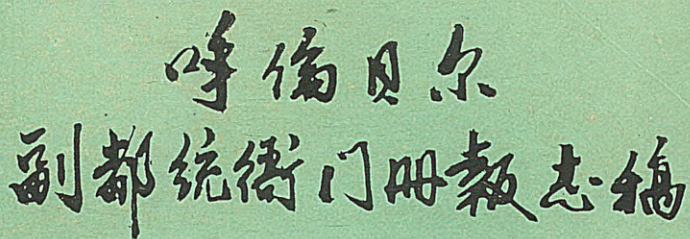 呼伦贝尔
副都统衙门册报志稿